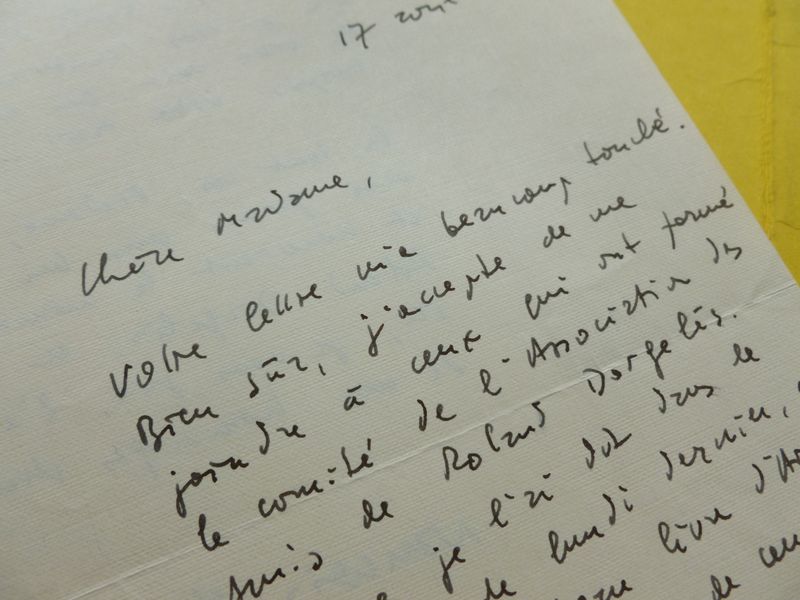 17 août
Chère Madame,
Votre lettre m'a beaucoup touché.
Bien sûr, j'accepte de me
joindre à ceux qui ont formé
le comité de l'Association des
Amis de Roland Dorgelès.
je l'ai dit dans le
de lundi dernier,
livre d'A
de